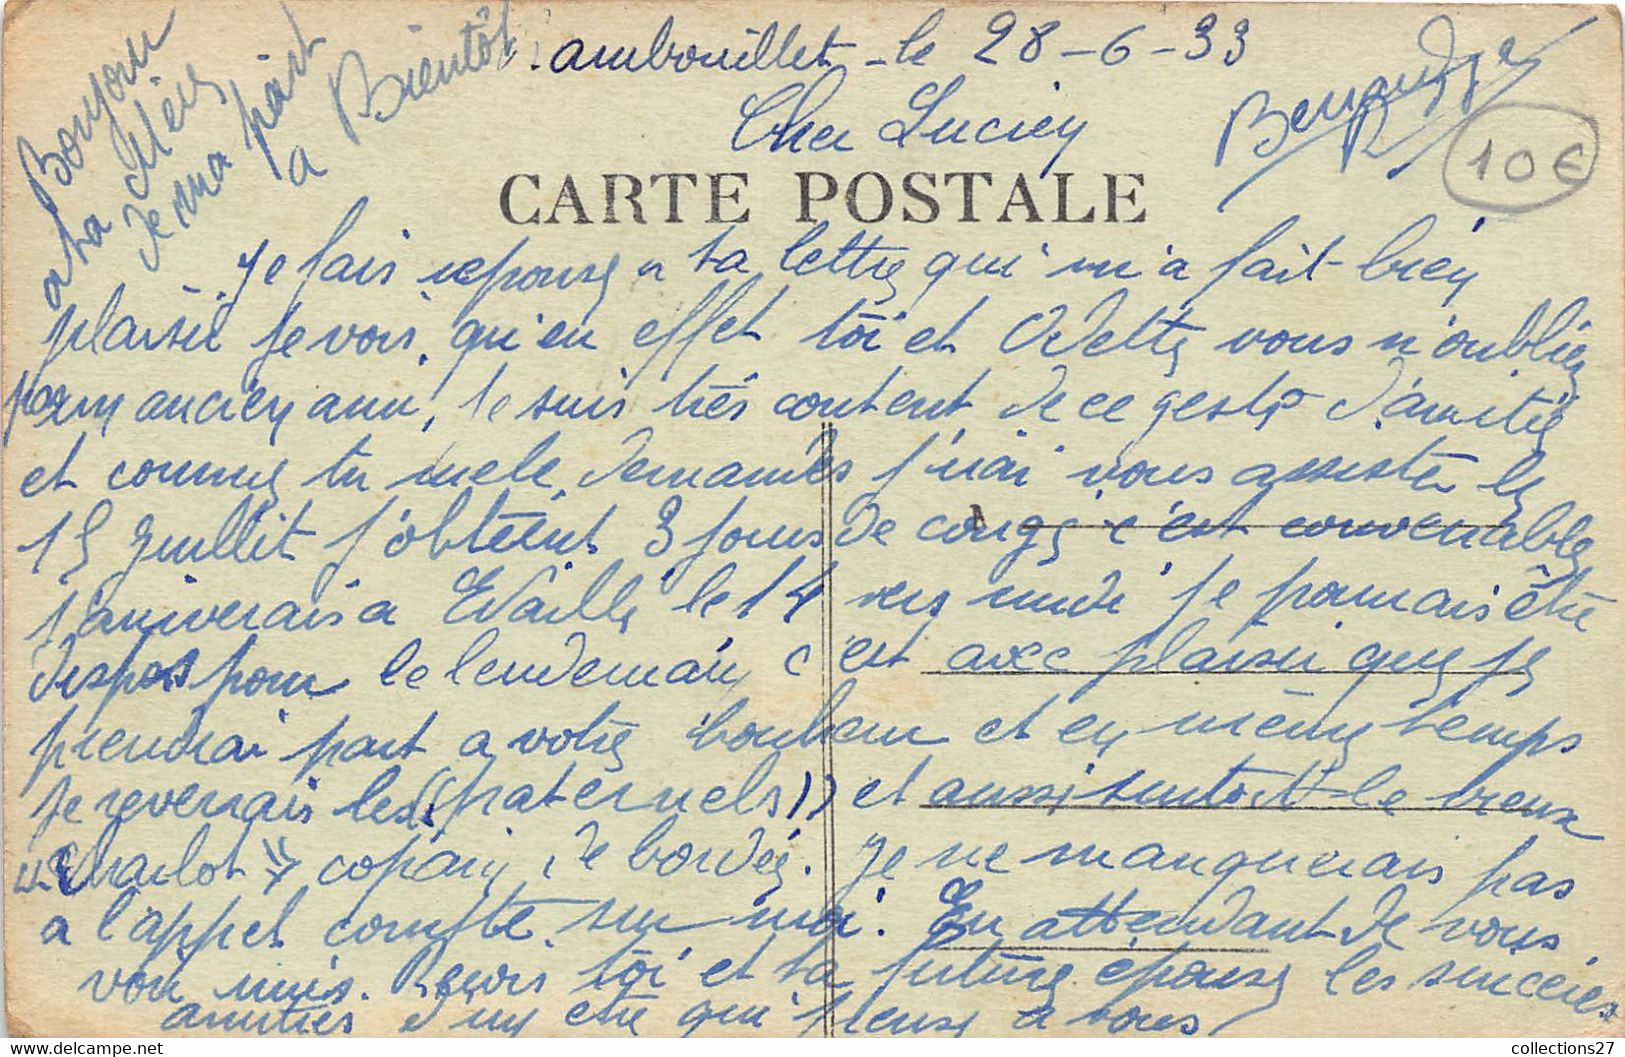 Rambouillet - le 28-6-33
Cher Lucien
10€
CARTE POSTALE
Je fais reponse a ta lettre qui m'a fait bien
plaisir je vois, qu'en effet toi et Odette vous n'oublier
pas un ancien ami, Je suis très content de ce geste d'amitié
et comme tu me le demandes j'irai vous assister le
15 Juillit j'obtient 3 jours de conge c'est convenable
j'arriverais a Evaillé le 14 vers midi je pourrais être
dispos pour le lendemain, c'est avec plaisir que je
prendrai part a votre bonheur et en même temps
je reverrais les "paternels" et aussi surtout le vieux
"Charlot" copain de bordée. Je ne manquerais pas
a l'appel compte sur moi. En attendant de vous
voir unis. Reçois toi et ta future épouse les sincères
amitiés d'un être qui pense a vous
Bonjour
a ta
de ma part
a Bientôt
collections27